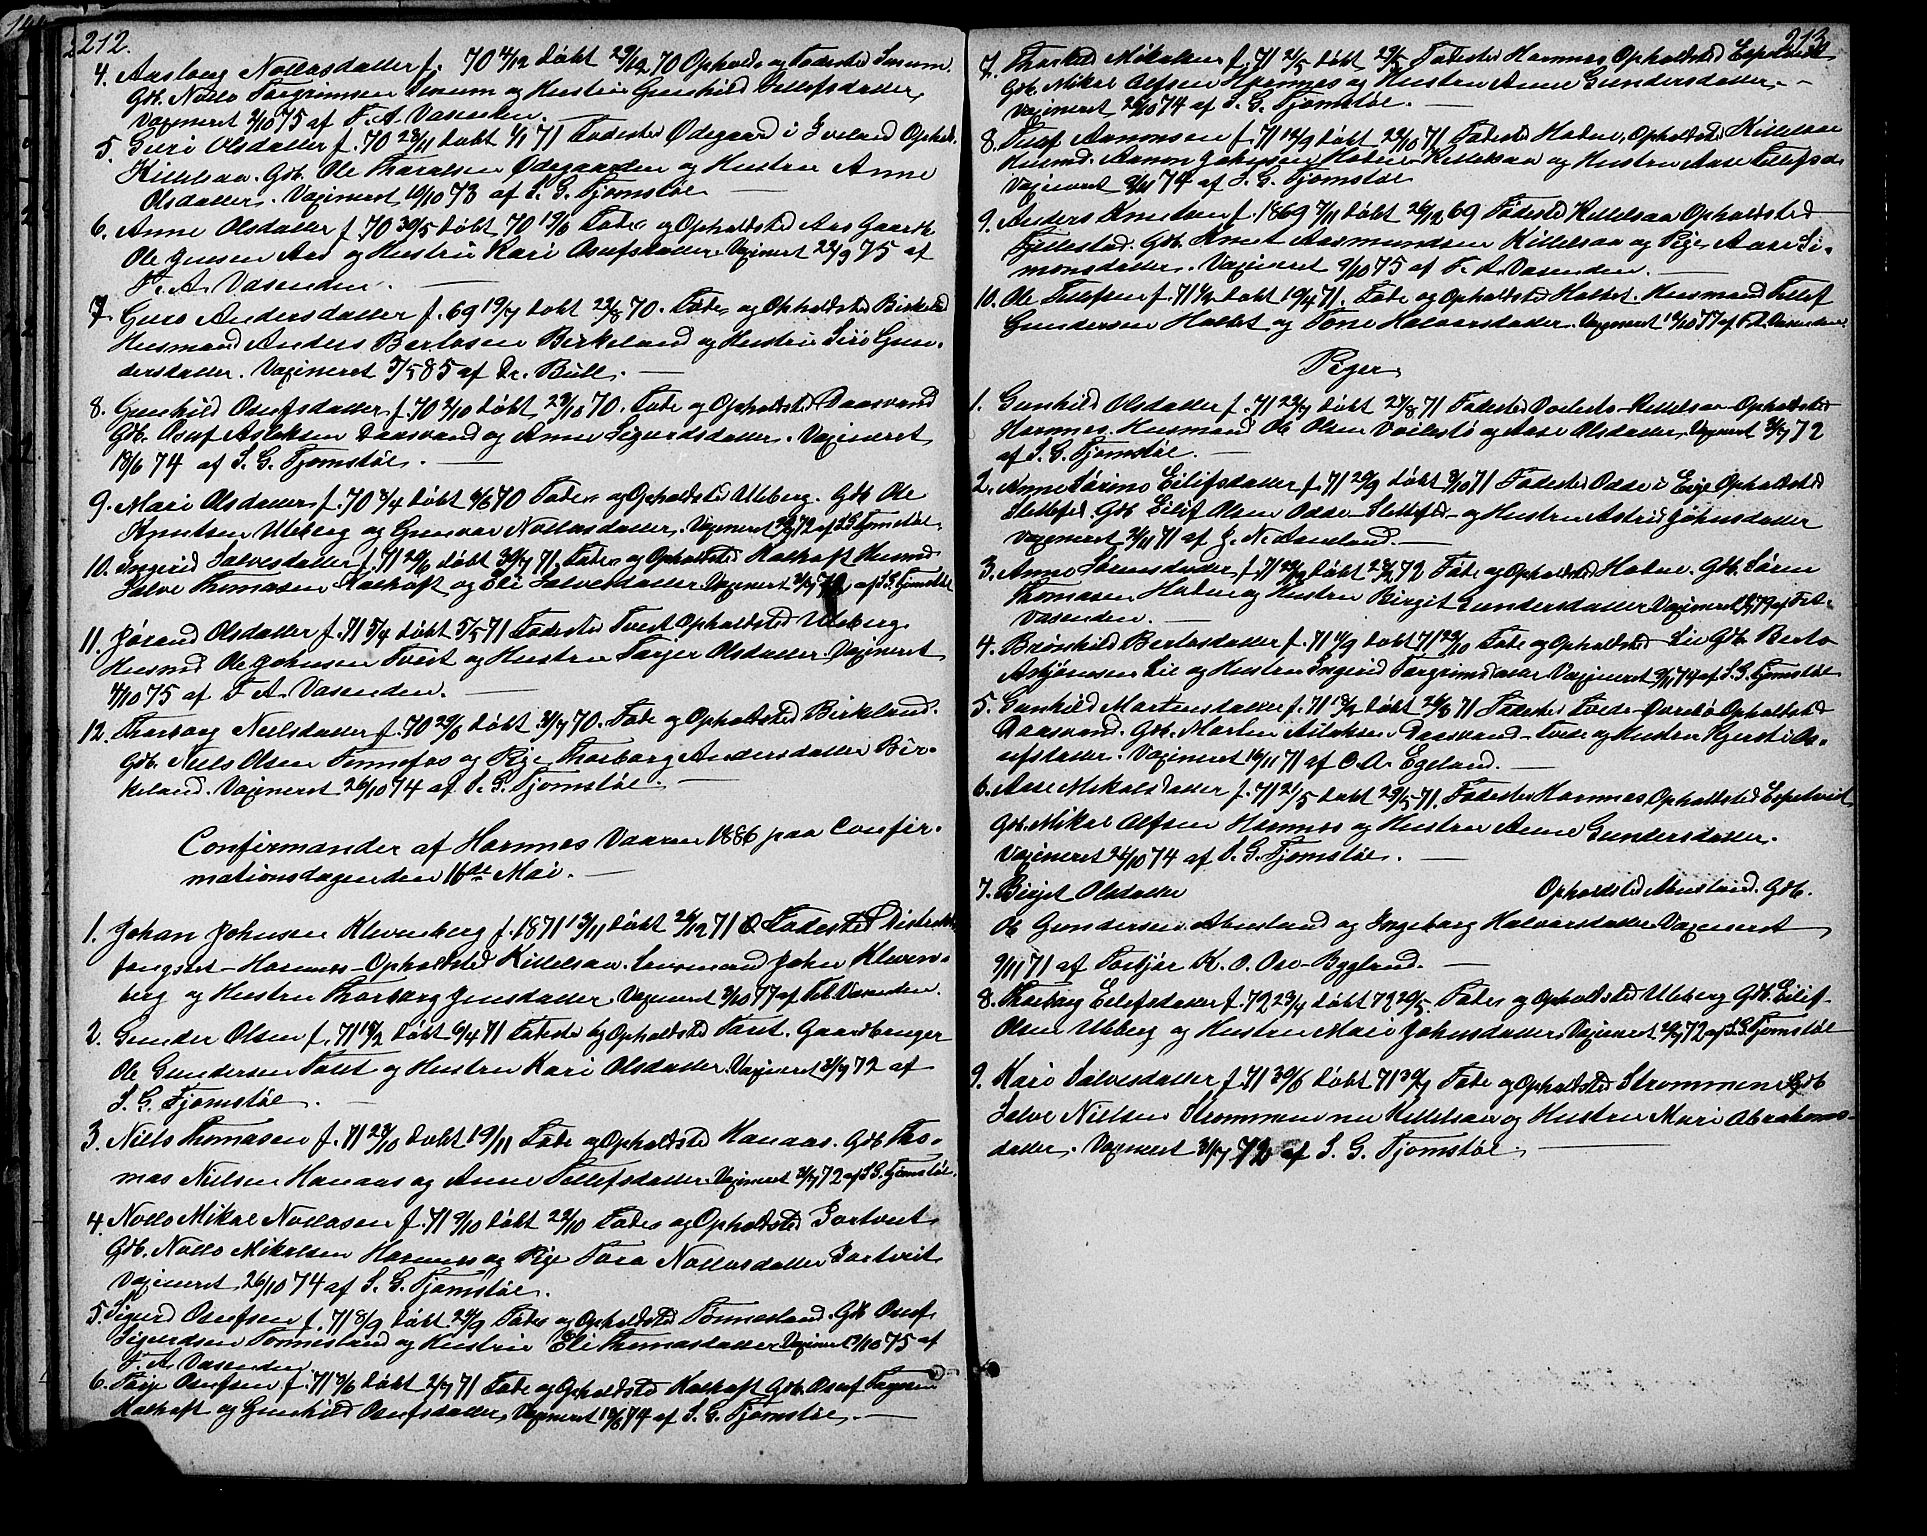 212.
4. Aasborg Nollosdatter f. 70 4/12 döbt 29/12 70 Opholds og Fødested Senum.
Gdb. Nollo Torgrimsen Senum og Hustru Gunhild Tellefsdatter,
Vaxineret 2/10 75 af F. A. Vasenden.
5. Guri Olsdatter f. 70 28/11 döbt 1/1 71 Fødested Ødegaard i Iveland Ophold.
Killelsaa. Gdb. Ole Tharalsen Ødegaarden og Hustru Anne
Olsdatter. Vaxineret 10/10 73 af S. G. Fjomstøl
6. Anne Olsdatter f. 70 30/5 döbt 70 19/6 Føde- og Opholdsted Aas Gaardb.
Ole Jensen Aas og Hustru Kari Osufsdatter. Vaxineret 22/9 75 af
F. A. Vasenden.
7. Guro Andersdatter f. 69 19/7 döbt 22/8 70. Føde- og Opholdsted Birkeld
Husmand Anders Bertosen Birkeland og Hustru Siri Gun-
dersdatter. Vaxineret 7/5 85 af Dr. Bull.
8. Gunhild Osufsdatter f. 70 2/10 döbt 23/10 70. Føde og Opholdsted Daasvand
Gdb. Osuf Aslaksen Daasvand og Anne Sigurdsdatter. Vaxineret
18/6 74 af S. G. Fjomstøl.
9. Mari Olsdatter f. 70 3/4 döbt 6/6 70 Føde- og Opholdsted Uleberg. Gdb Ole
Knutsen Uleberg og Gunvor Nollosdatter. Vaxineret 72 af S. G. Fjomstøl.
10. Ingerid Salvesdatter f. 71 20/6 döbt 30/7 71, Føde- og Opholdsted Kalhaft Husmd
Salve Thomasen Kalhaft og Eli Salvesdatter Vaxineret 31/7 72 af S. G. Fjomstøl
11. Jórand Olsdatter f. 71 5/4 döbt 5/5 71 Fødested Tveit Opholdsted Uleberg.
Husmd Ole Johnsen Tveit og Hustru Targer Olsdatter Vaxineret
4/10 75 af F. A. Vasenden.
12. Thorborg Neelsdatter f. 70 29/6 döbt 31/7 70. Føde og Opholdsted Birkland.
Gdb. Neels Olsen Fennefos og Pige Thorborg Andersdatter Bir-
keland. Vaxineret 26/10 74 af S. G. Fjomstøl
Confirmander af Hornnes Vaaren 1886 paa Confir-
mationsdagen den 16de Mai.
1. Johan Johnsen Klevenberg f. 1871 13/11 döbt 26/12 71 Fødested Distrikts
fængslet - Hornnes - Opholdsted Killelsaa. Lensmand John Kleven-
berg og Hustru Thorborg Jensdatter. Vaxineret 3/10 77 af F.A. Vasenden.
2. Gunder Olsen f. 71 18/2 döbt 6/4 71 Fødested og Opholdsted Faret. Gaardbruger
Ole Gundersen Faret og Hustru Kari Olsdatter. Vaxineret 31/7 72 af
S. G. Fjomstøl.
3. Niels Thomasen f. 71 28/10 döbt 19/11 Føde og Opholdsted Kanaas. Gdb Tho-
mas Nielsen Kanaas og Anne Tellefsdatter. Vaxineret 31/7 72 af S. G. Fjomstøl.
4. Nollo Mikal Nollosen f. 71 9/10 döbt 29/10 Føde- og Opholdsted Fortveit.
Gdb. Nollo Mikalsen Hornnes og Pige Tora Nollosdatter Fortveit
Vaxineret 26/10 74 af S. G. Fjomstøl.
5. Sigurd Osufsen f. 71 8/9 döbt 24/9 Føde- og Opholdsted Tønnesland. Gdb Osuf
Sigurdsen Tønnesland og Hustru Eli Thomasdatter Vaxineret 12/10 75 af
F. A. Vasenden
6. Terje Osufsen f. 71 döbt 2/7 71 Føde og Opholdsted Kalhaft Gdb. Osuf Terjesen
Kalhaft og Gunhild Osufsdatter. Vaxineret 18/6 74 af S. G. Fjomstøl.
213
7. Thorkild Mikalsen f. 71 21/5 döbt 29/5 Fødested Hornnes, Opholdsted Espetveit
Gdb. Mikal Olfsen Hornnes og Hustru Anne Gundersdatter.
Vaxineret 26/10 74 af S. G. Fjomstøl.
8. Tellef Aanonsen f. 71 18/9 döbt 22/10 71 Fødested Hodne, Opholdsted Killelsaa
Husmd. Aanon Johnsen Hodne - Killelsaa og Hustru Aase Tellefsd.
Vaxineret 74 af S. G. Fjomstøl
9. Anders Knutsen f. 1869 7/11 döbt 26/12 69 Fødested Killelsaa Opholdsted
Fjellestad. Gdb. Knut Aasmundsen Killelsaa og Pige Aase Si-
monsdatter. Vaxineret 2/10 75 af F. A. Vasenden.
10. Ole Tellefsen f. 71 döbt 10/4 71. Føde og Opholdsted Holtet. Husmand Tellef
Gundersen Holtet og Tone Halvorsdatter. Vaxineret 10/10 77 af F. A. Vasenden.
Piger.
1. Gunhild Olsdatter f. 71 22/7 döbt 27/8 71 Fødested Voilestø-Killelsaa Opholdsted
Hornnes. Husmand Ole Olsen Voilestø og Aase Olsdatter. Vaxineret 31/7 72
af S. G. Fjomstøl.
2. Anne Serine Eilifsdatter f. 71 20/9 döbt 8/10 71 Fødested Odde i Evje Opholdsted
Slettefed. Gdb Eilif Olsen Odde - Slettefed - og Hustru Astrid Johnsdatter
vaxineret 71 af J. N. Aaneland.
3. Anne Sørensdatter f. 71 döbt 72 Føde og Opholdsted Hodne. Gdb. Søren
Thomasen Hodne og Hustru Birgit Gundersdatter Vaxineret 79 af F. A.
Vasenden.
4. Brønhild Bertosdatter f. 71 döbt 71 29/10 Føde og Opholdsted - Lie Gdb. Berto
Asbjønsen Lie og Hustru Ingerid Torgrimsdatter Vaxineret 74 af S. G. Fjomstøl
5. Gunhild Martensdatter f. 71 döbt 20/8 71 Fødested Tveide - Øvrebø Opholdsted
Daasvand. Gdb. Morten Aslaksen Daasvand - Tveide og Hustru Kjersti Os-
ufsdatter. Vaxineret 10/11 71 af O. A. Egeland.
6. Aase Mikalsdatter f. 71 21/5 döbt 29/5 71. Fødested Hornnes Opholdsted Espetveit
Gdb. Mikal Olfsen Hornnes og Hustru Anne Gundersdatter.
Vaxineret 26/10 74 af S. G. Fjomstøl.
7. Birgit Olsdatter Opholdsted Abusland. Gdb.
Ole Gundersen Abusland og Ingeborg Halvorsdatter Vaxineret
9/11 71 af Torbjør K. O. Ose - Bygland.
8. Thorborg Eilifsdatter f. 72 23/4 döbt 72 29/5. Føde- og Opholdsted Uleberg Gdb. Eilif
Olsen Uleberg og Hustru Mari Johnsdatter. Vaxineret 72 af S. G. Fjomstøl
9. Kari Salvesdatter f. 71 30/6 döbt 71 30/7 Føde og Opholdsted Strømmene Gdb
Salve Nielsen Strømmene Killelsaa og Hustru Mari Abrahams-
datter. Vaxineret 31/7 72 af S. G. Fjomstøl.